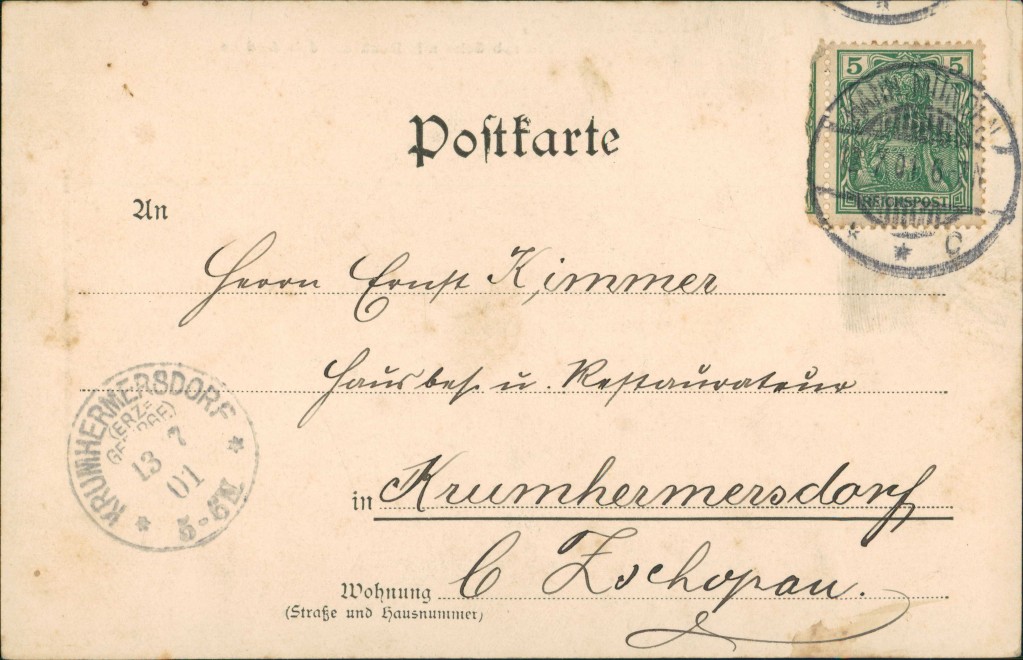 Postkarte
5 5
REICHSPOST
7 01 6-7N
C
An
Herrn Ernst Kimmer
Hausbes. u. Restaurateur
KRUMHERMERSDORF
(ERZ=
GEBIRGE)
13 7
01
5-6N
in Krumhermersdorf
b Zschopau.
Wohnung
(Straße und Hausnummer)